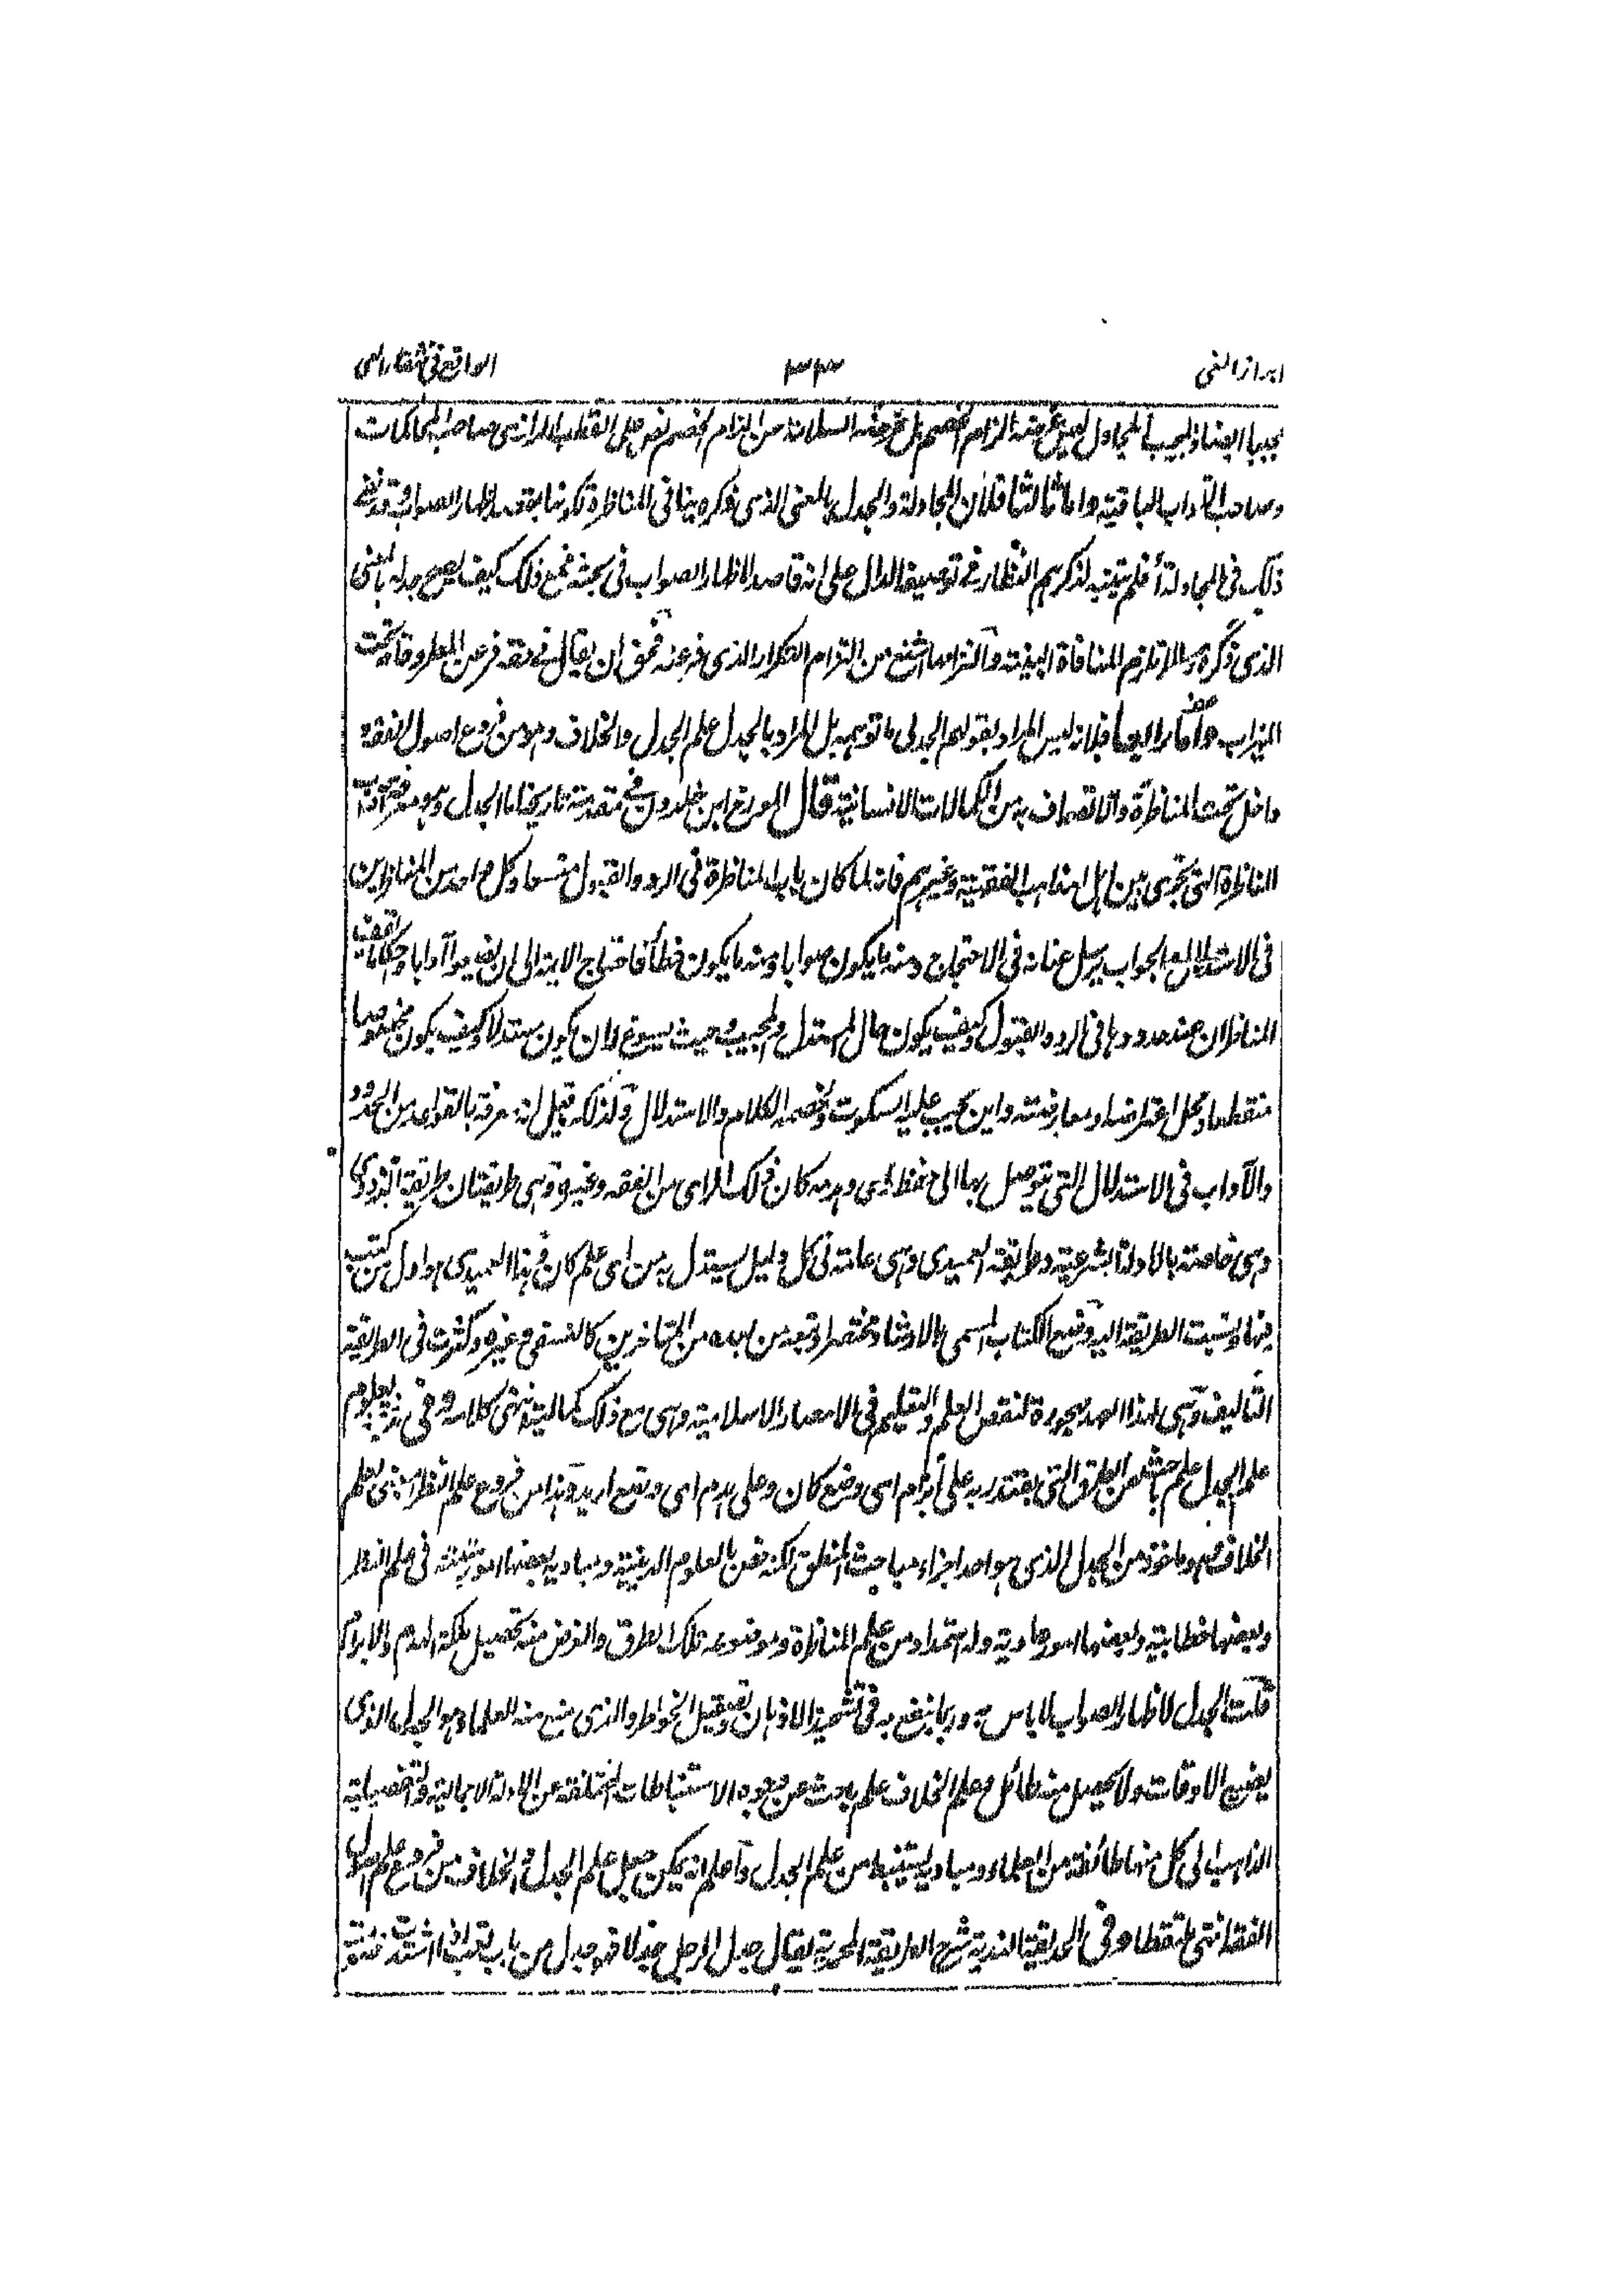 ابراز الغي ٣٣ الواقع في شفاء العي
مجيبا ايضا والمجيب المجادل ليس غرضه الزام الخصم بل غرضه السلامة من الزام الخصم نص عليه القطب الرازي صاحب المحاكمات
وصاحب الآداب الباقية واما ثالثا فلان المجادلة والجدل بالمعنى الذي ذكره ينافي المناظرة لكونها بقصد اظهار الصواب وفقد
ذلك في المجادلة أفلم يتنبه لذكرهم النظار في توصيفه الدال على انه قاصد لاظهار الصواب في بحثه فمع ذلك كيف يصح جدله بالمعنى
الذي ذكره والا لزم المنافاة البينة والتزامها اشنع من التزام التكرار الذي فر عنه فحق ان يقال في حقه فر عن المطر وقام تحت
الميزاب واما رابعا فلانه ليس المراد بقولهم الجدلي ما توهمه بل المراد بالجدل علم الجدل والخلاف وهو من فروع اصول الفقه
داخل تحت المناظرة والاتصاف به من الكمالات الانسانية قال المورخ ابن خلدون في مقدمة تاريخه اما الجدل وهو معرفة آداب
المناظرة التي تجري بين اهل المذاهب الفقهية وغيرهم فانه لما كان باب المناظرة في الرد والقبول متسعا وكل واحد من المناظرين
في الاستدلال والجواب يرسل عنانه في الاحتجاج ومنه ما يكون صوابا ومنه ما يكون خطأ فاحتاج الائمة الى ان يضعوا آدابا واحكاما يقف
المناظران عند حدودها في الرد والقبول وكيف يكون حال المستدل والمجيب وحيث يسوغ له ان يكون مستدلا وكيف يكون مخصوصا
منقطعا ومحل اعتراضه او معارضته واين يجب عليه السكوت ولخصمه الكلام والاستدلال ولذلك قيل انه معرفة بالقواعد من الحدود
والآداب في الاستدلال التي يتوصل بها الى حفظ رأي وهدمه كان ذلك الراي من الفقه وغيره وهي طريقتان طريقة البزدوي
وهي خاصة بالادلة الشرعية وطريقة العميدي وهي عامة في كل دليل يستدل به من اي علم كان وهذا العميدي هو اول من كتب
فيها ونسبت الطريقة اليه وضع الكتاب المسمى بالارشاد مختصرا وتبعه من بعده من المتاخرين كالنسفي وغيره وكثرت في الطريقة
التآليف وهي لهذا العهد مهجورة لنقص العلم والتعليم في الامصار الاسلامية وهي مع ذلك كمالية انتهى كلامه وفي مدينة العلوم
علم الجدل علم باحث عن الطرق التي يقتدر به على ابرام اي وضع كان وعلى هدم اي وضع اريد وهذا من فروع علم النظر ومبنى لعلم
الخلاف وهو ماخوذ من الجدل الذي هو احد اجزاء مباحث المنطق لكنه خص بالعلوم الدينية ومباديه بعضها امور مبينة في علم النظر
وبعضها خطابية وبعضها امور عادية وله استمداد من علم المناظرة وموضوعه تلك الطرق والغرض منه تحصيل ملكة الهدم والابرام
قلت الجدل لاظهار الصواب لا باس به وربما ينفع به في تشحيذ الاذهان وتصقيل الخواطر والذي منع منه العلماء وهو الجدل الذي
يضيع الاوقات ولا يحصل منه طائل وعلم الخلاف علم باحث عن وجوه الاستنباطات المختلفة عن الادلة الاجمالية والتفصيلية
الذاهب الى كل منها طائفة من العلماء ومباديه مستنبطة من علم الجدل واعلم انه يمكن جعل علم الجدل والخلاف من فروع علم اصول
الفقه انتهى ملتقطا وفي الحديقة الندية شرح الطريقة المحمدية يقال جدل الرجل جدلا فهو جدل من باب تعب اذا اشتدت خصومته